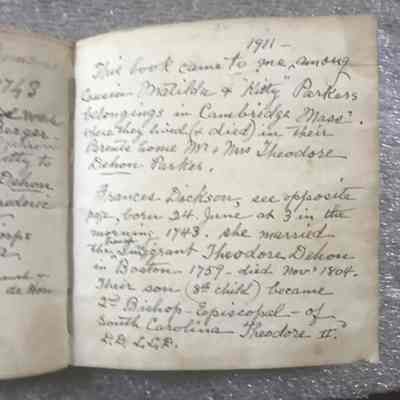 1743
1911 -
This book came to me, among
Cousin Matilda & "Kitty" Parkers
belongings in Cambridge Mass.
where they lived (& died) in their
Parents home Mr & Mrs Theodore
Dehon Parker.
Frances Dickson, see opposite
page, born 24 June at 3 in the
morning 1743. she married
the Imigrant Theodore Dehon
in Boston - 1759 - died Novr 1804.
Their son (8th child) became
2nd Bishop - Episcopal - of
South Carolina Theodore II.
D.D. L.L.D.